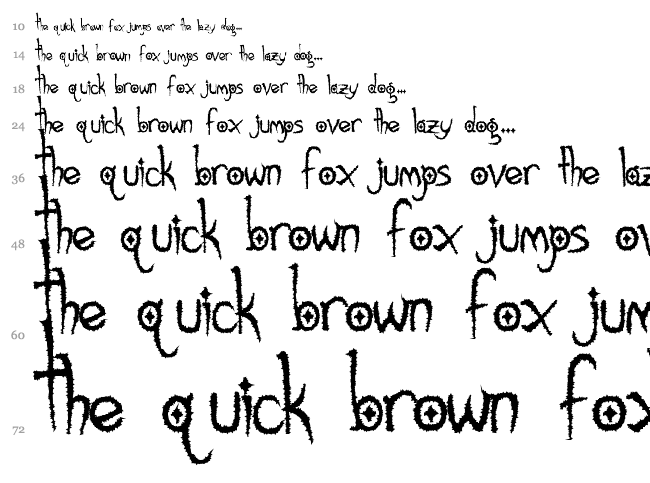 10 the quick brown fox jumps over the lazy dog...
14 the quick brown fox jumps over the lazy dog...
18 the quick brown fox jumps over the lazy dog...
24 the quick brown fox jumps over the lazy dog...
36 the quick brown fox jumps over the laz
48 the quick brown fox jumps ov
60 the quick brown fox jum
72 the quick brown fox